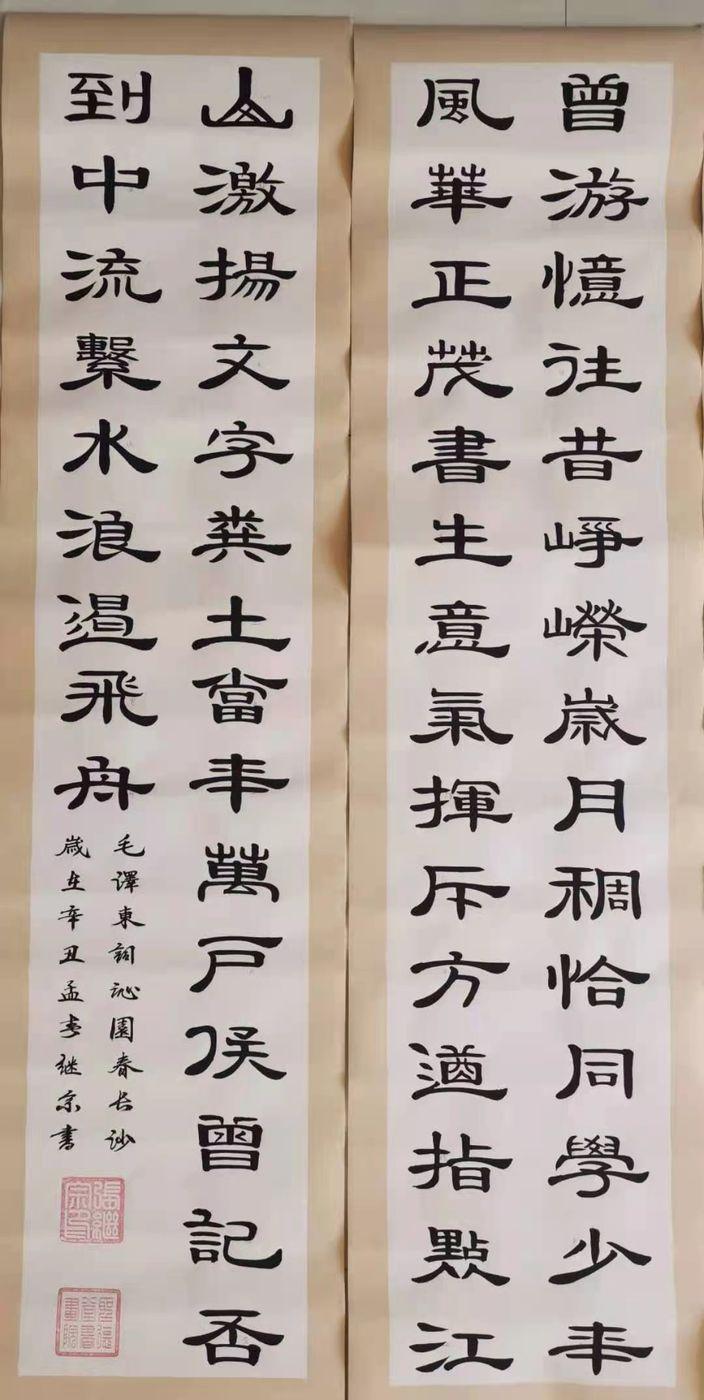 曾游憶往昔崢嶸歲月稠恰同學少年
風華正茂書生意氣揮斥方遒指點江
山激揚文字糞土當年萬戶侯曾記否
到中流繫水浪遏飛舟
毛澤東詞沁園春长沙
歲在辛丑孟春继宗書
張繼宗印